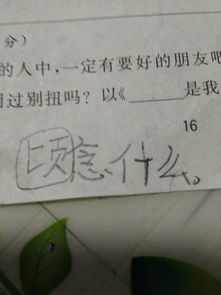 分）
的人中，一定有要好的朋友吧
过别扭吗？以《______是我
16
顷意.什么。